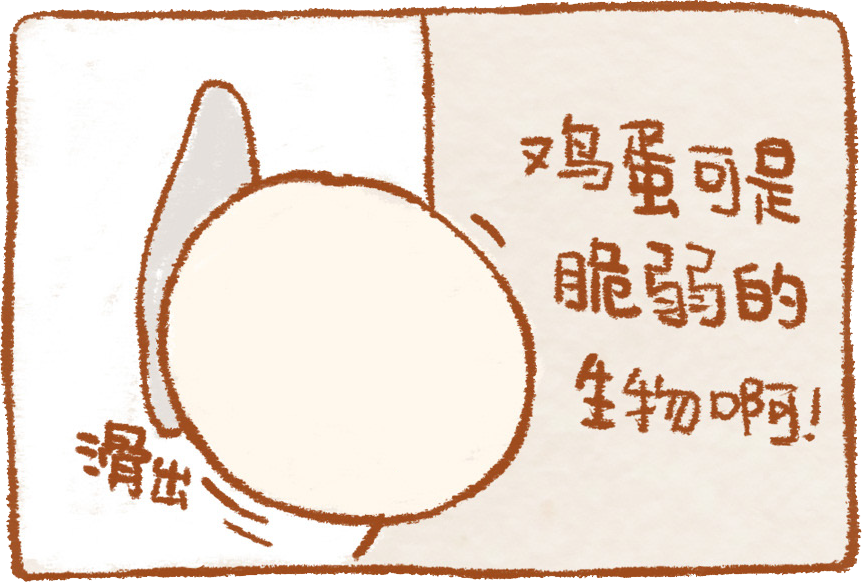 鸡蛋可是
脆弱的
生物啊!
滑出